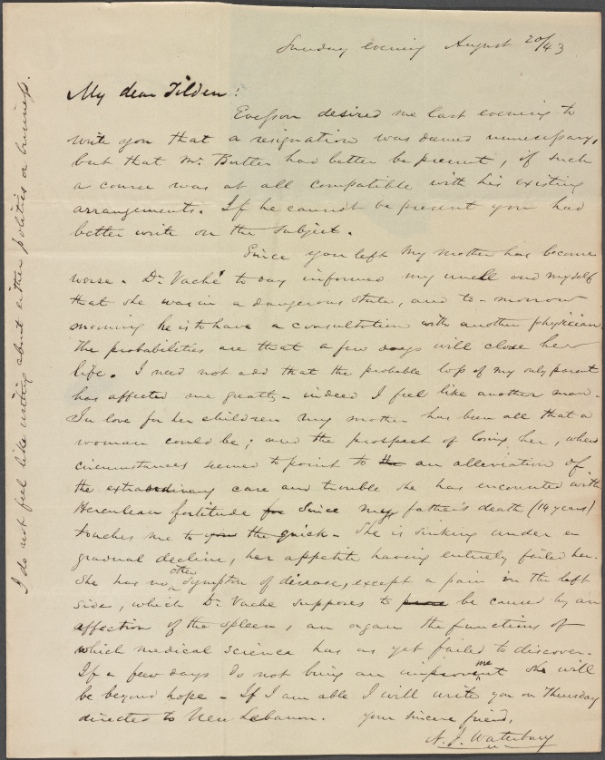 Sunday evening August 20/43
My dear Tilden:
desired me last evening to
write you that a resignation was deemed unnecessary,
but that Mr. Butler had better be present, if such
a course was at all compatible with his existing
arrangements. If he cannot be present you had
better write on the subject.
Since you left my mother has become
worse. Dr. Vaché to day informed my uncle and myself
that she was in a dangerous state, and to-morrow
morning he is to have a consultation with another physician
The probabilities are that a few days will close her
life. I need not add that the probable loss of my only parent
has affected me greatly - indeed I feel like another man.
In love for her children my mother has been all that a
woman could be; and the prospect of losing her, when
circumstances seemed to point to the an alleviation of
the extraordinary care and trouble she has encountered with
Herculean fortitude for since my father's death (14 years)
touches me to the quick. She is sinking under a
gradual decline, her appetite having entirely failed her.
She has no other symptom of disease, except a pain in the left
side, which Dr. Vache supposes to be caused by an
affection of the spleen, an organ the functions of
which medical science has as yet failed to discover.
If a few days do not bring an improvement she will
be beyond hope - If I am able I will write you on Thursday
directed to New Lebanon. your sincere friend,
N. J. Waterbury
I do not feel like writing about either politics or business.